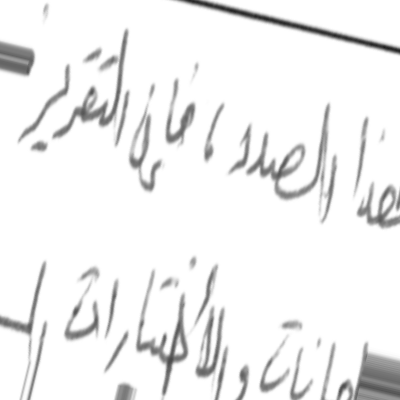 هذا الصدد، فإن التقرير
والاختبارات